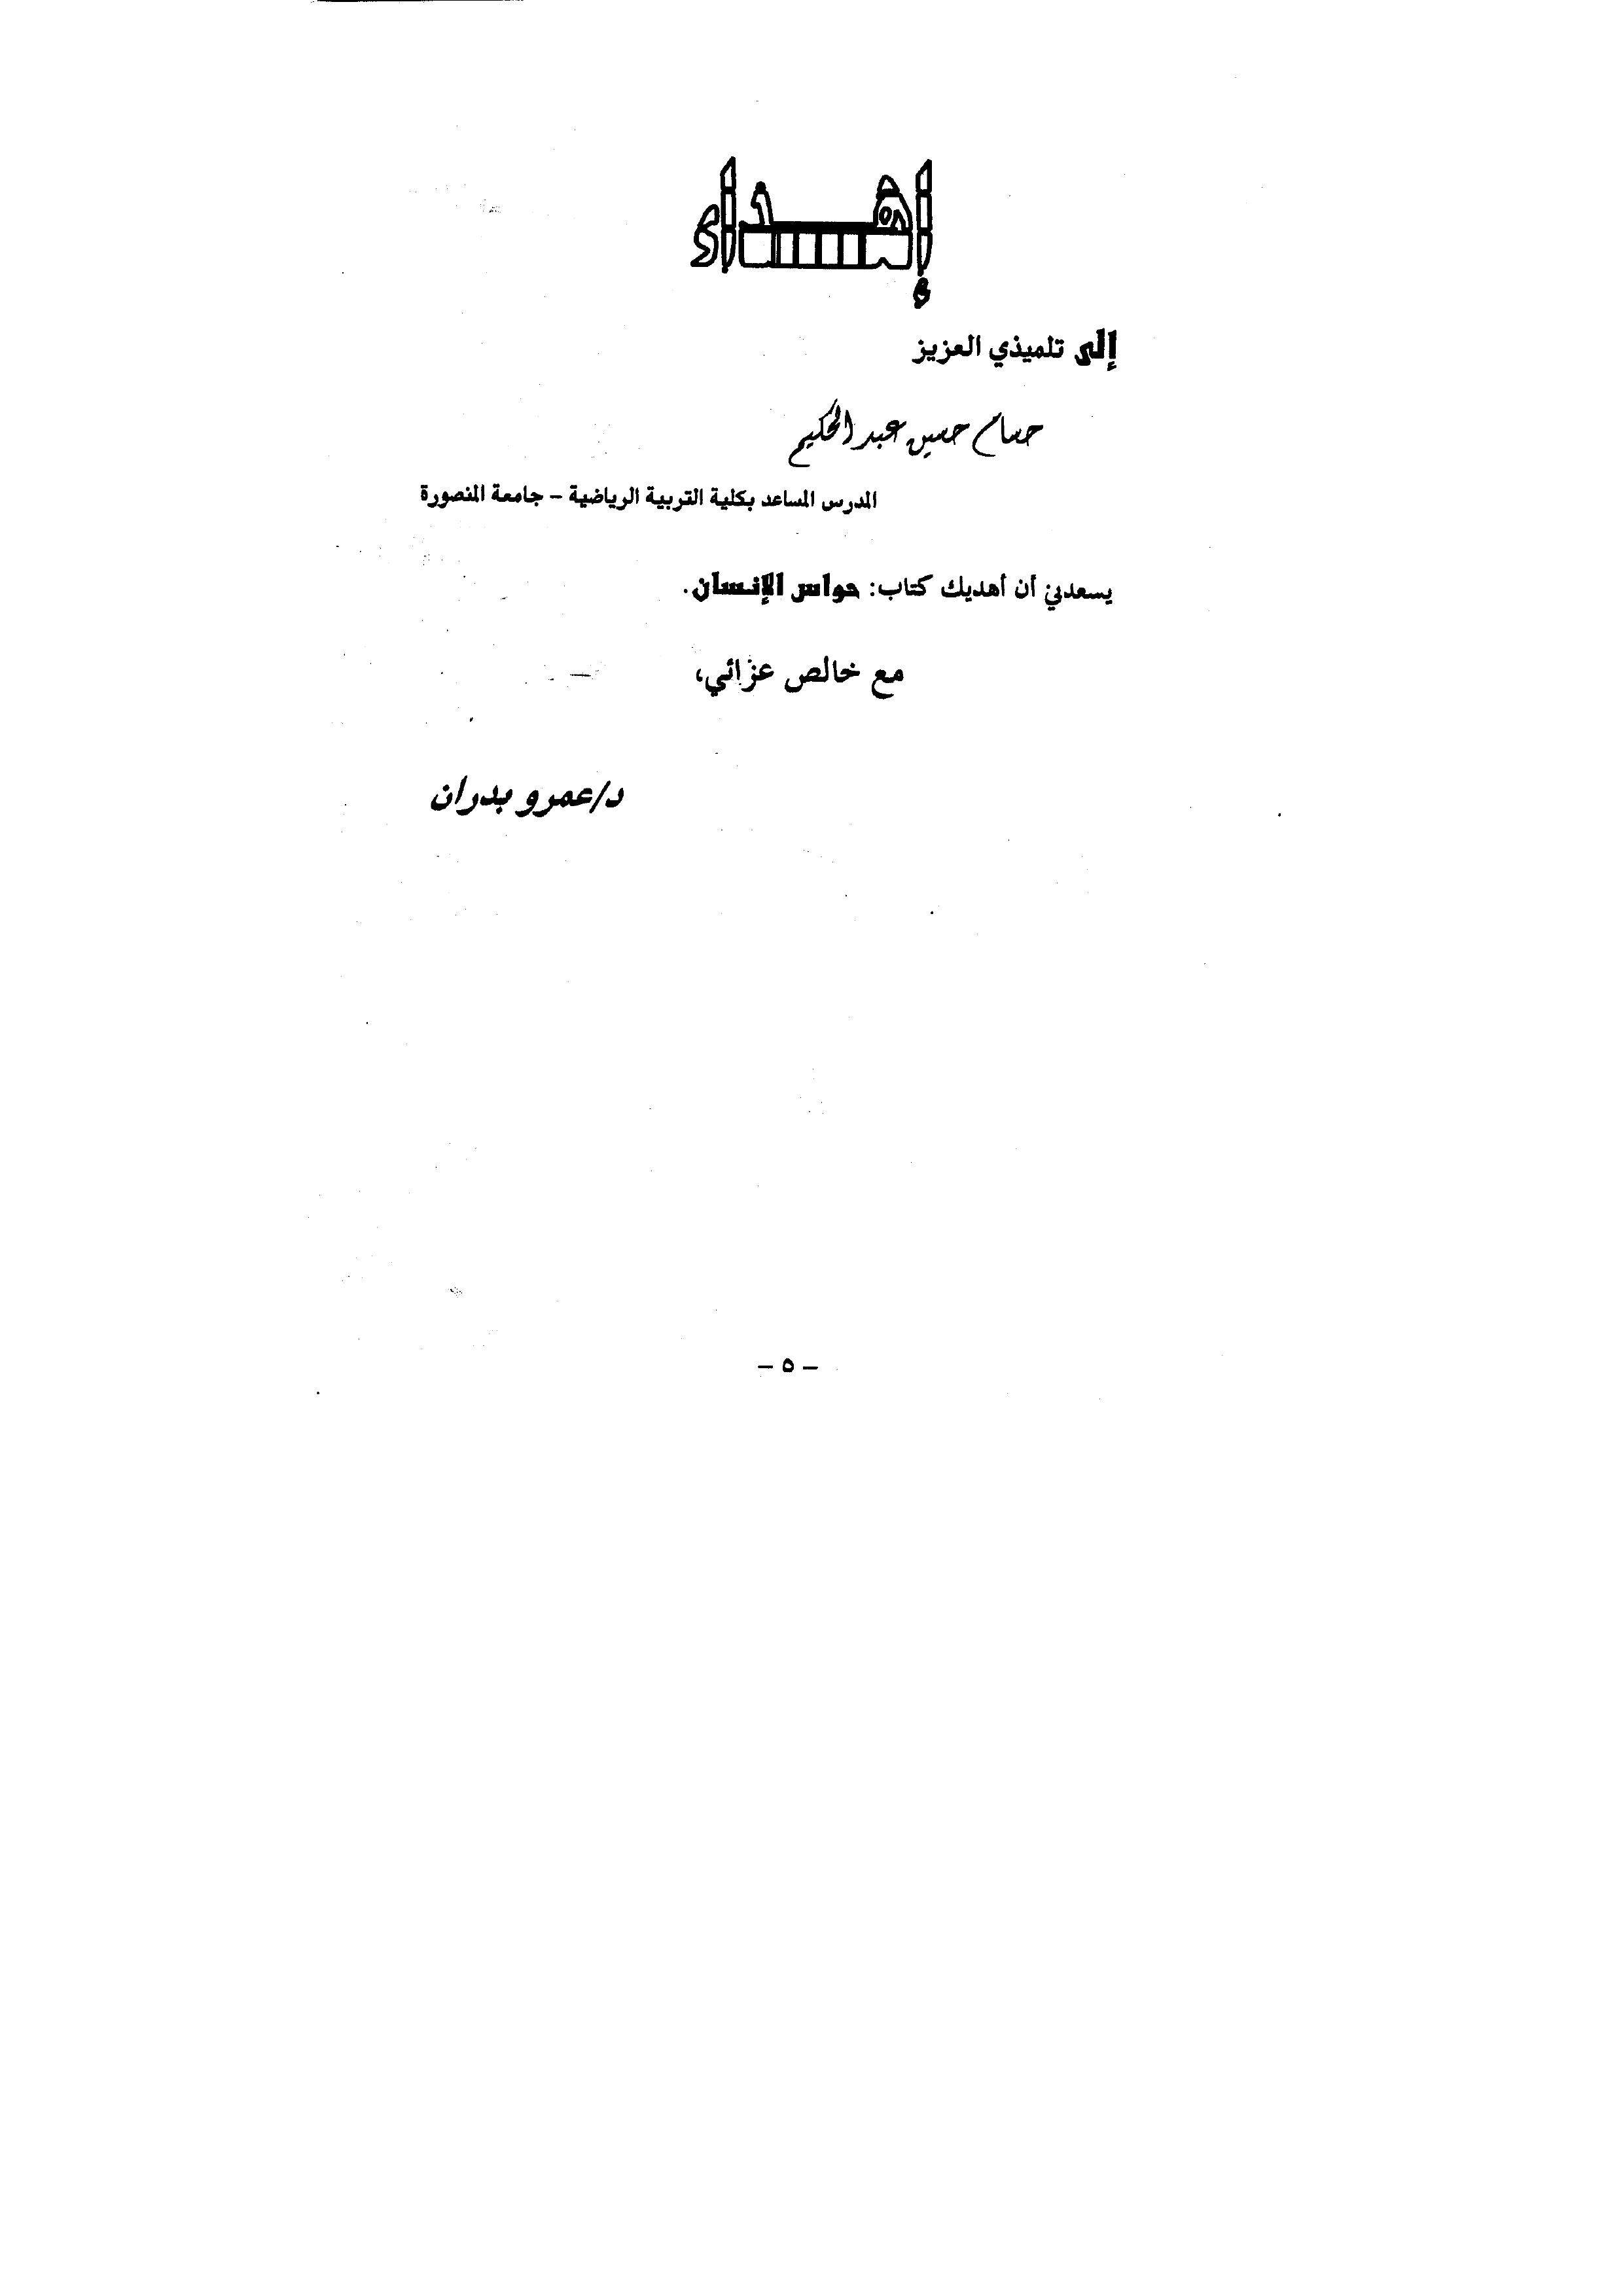 إهداء
إلى تلميذي العزيز
حسام حسين عبد الحكيم
المدرس المساعد بكلية التربية الرياضية – جامعة المنصورة
يسعدني أن أهديك كتاب: حواس الإنسان.
مع خالص عزائي،
د/عمرو بدران
– ٥ –